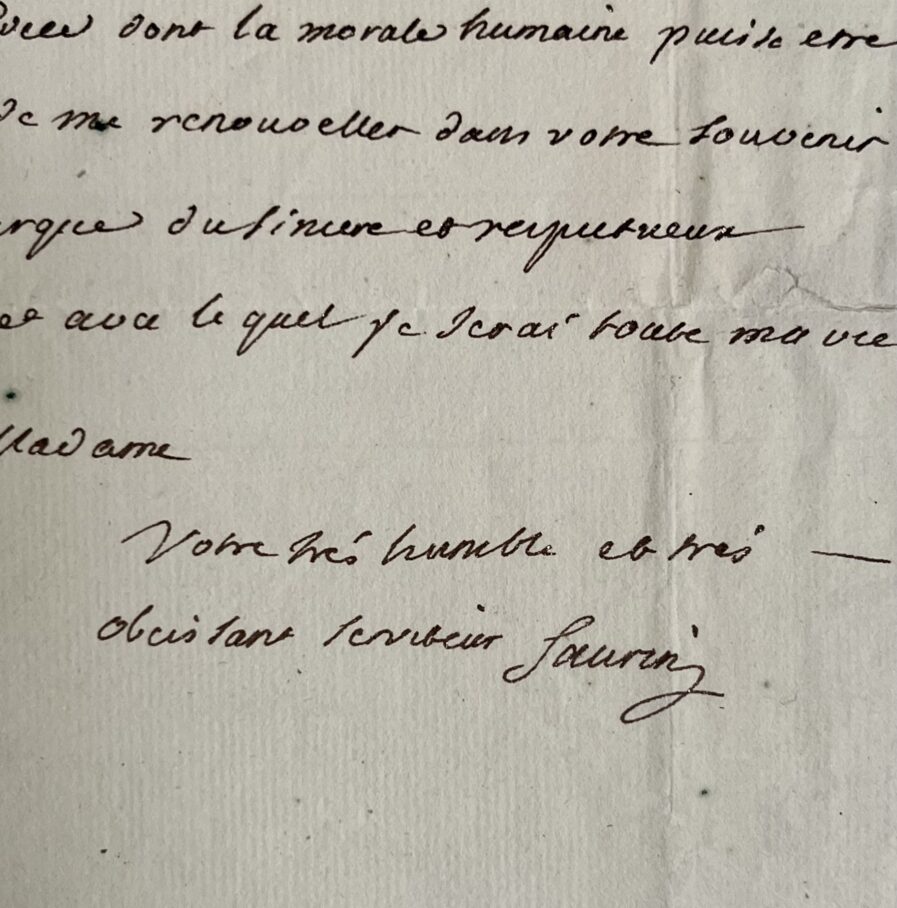 dont la morale humaine puisse etre
de me renouveller dans votre souvenir
du sincere et respectueux
avec le quel je serai toute ma vie
Madame
Votre trés humble et trés —
obeissant serviteur Saurin